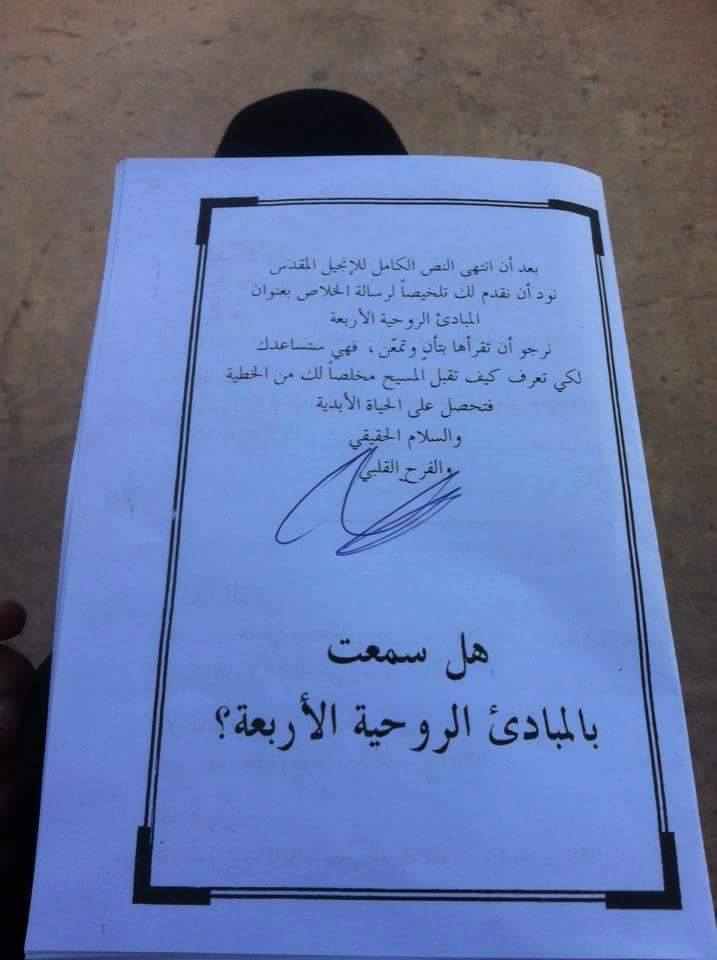 بعد أن انتهى النص الكامل للإنجيل المقدس
نود أن نقدم لك تلخيصاً لرسالة الخلاص بعنوان
المبادئ الروحية الأربعة
نرجو أن تقرأها بتأنٍ وتمعّن ، فهي ستساعدك
لكي تعرف كيف تقبل المسيح مخلصاً لك من الخطية
فتحصل على الحياة الأبدية
والسلام الحقيقي
والفرح القلبي
هل سمعت
بالمبادئ الروحية الأربعة؟